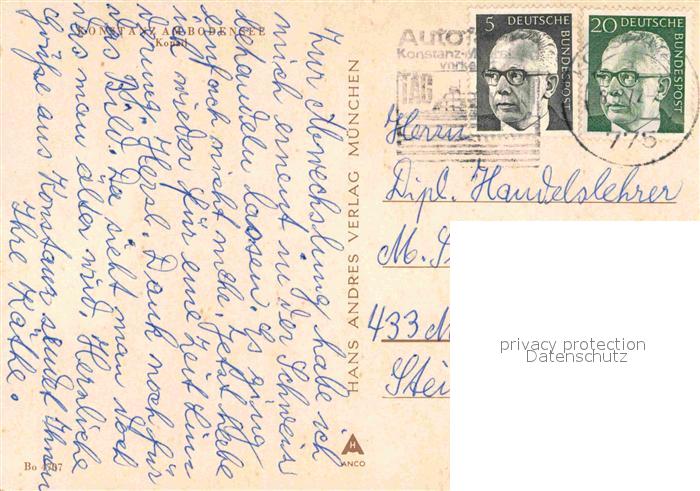 KONSTANZ AM BODENSEE
Konzil
Zur Abwechslung habe ich
mich erneut in der Schweiz
behandeln lassen. Es ging
einfach nicht mehr. Jetzt habe
ich wieder für eine Zeit Lin-
derung. Herzl. Dank noch für
das Bild. Da sieht man doch
das man älter wird. Herzliche
Grüße aus Konstanz sendet Ihnen
Ihre Käthe.
Bo 4707
HANS ANDRES VERLAG MÜNCHEN
H
ANCO
Autof
Konstanz-
TAG
5 DEUTSCHE
BUNDESPOST
20 DEUTSCHE
BUNDESPOST
775
Herrn
Dipl. Handelslehrer
M.
433 M
Stei
privacy protection
Datenschutz